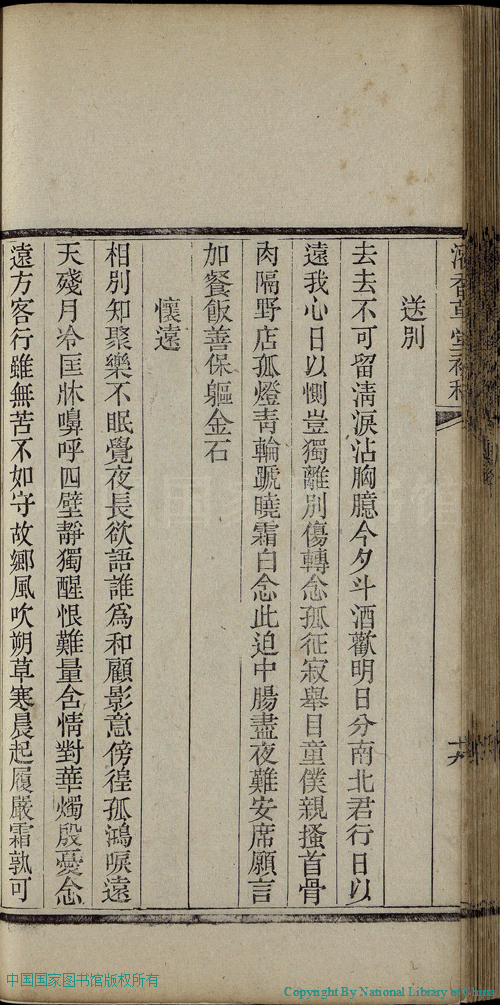 送別
去去不可留清淚沾胸臆今夕斗酒歡明日分南北君行日以
遠我心日以惻豈獨離別傷轉念孤征寂舉目童僕親搔首骨
肉隔野店孤燈靑輪蹏曉霜白念此迫中腸盡夜難安席願言
加餐飯善保軀金石
懷遠
相別知聚樂不眠覺夜長欲語誰爲和顧影意傍徨孤鴻唳遠
天殘月冷匡牀嚊呼四壁靜獨醒恨難量含情對華燭殷憂念
遠方客行雖無苦不如守故鄉風吹朔草寒晨起履嚴霜孰可
中国国家图书馆版权所有
Copyright By National Library of China